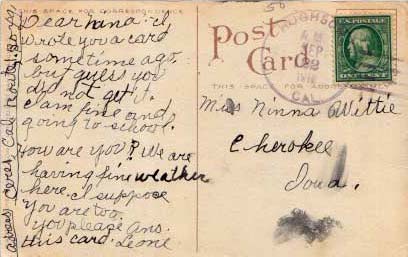 THIS SPACE FOR CORRESPONDENCE
Dear nana - I
wrote you a card
sometime ago.
but guess you
do not get it.
I am fine and
going to school.
How are you? We are
having fine weather
here. I suppose
you are too.
you please ans.
this card. Leone
Ceres, Cal. Route 1, Box
Post
Card
THIS SPACE FOR ADDRESS ONLY
HUGHSON
A.M.
SEP
CAL.
U.S. POSTAGE
ONE CENT
Miss Ninna Wittie
Cherokee
Iowa.
50